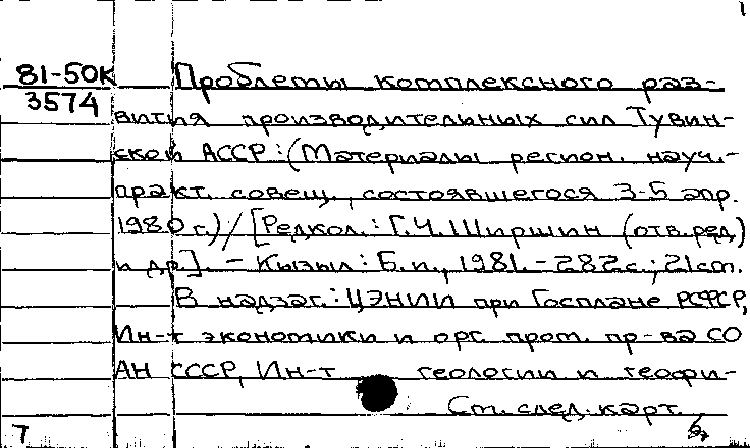 1
81-50К Проблемы комплексного раз-
3574
вития производительных сил Тувин-
ской АССР: (Материалы регион. науч.-
практ. совещ., состоявшегося 3-5 апр.
1980 г.) / [Редкол.: Г.Ч. Ширшин (отв. ред.)
и др.]. – Кызыл: Б.и., 1981. – 282 с.; 21 см.
В надзаг.: ЦЭНИИ при Госплане РСФСР,
Ин-т экономики и орг. пром. пр-ва СО
АН СССР, Ин-т геологии и геофи-
См. след. карт.
7